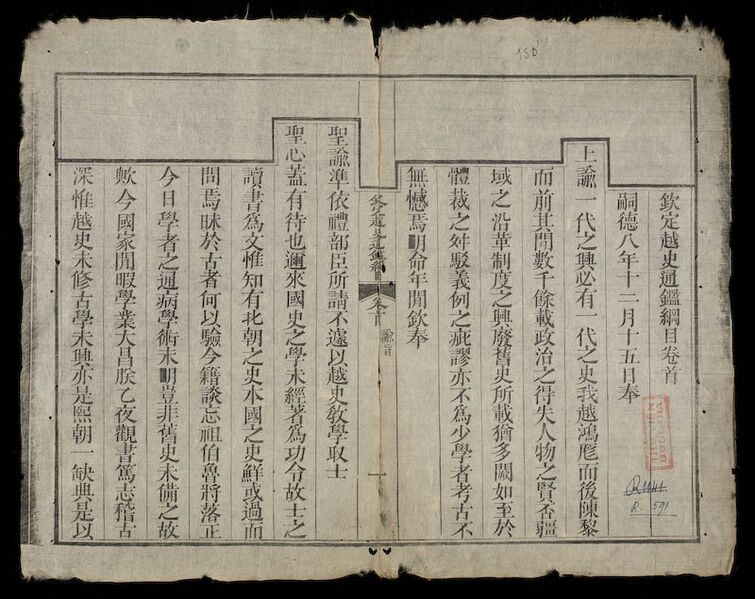 欽定越史通鑑綱目卷首
嗣德八年十二月十五日奉
上諭一代之興必有一代之史我越鴻厖而後陳黎
而前其間數千餘載政治之得失人物之賢否疆
域之沿革制度之興廢舊史所載猶多闕如至於
體裁之舛駁義例之疵謬亦不爲少學者考古不
無憾焉明命年閒欽奉
欽定越史通鑑綱目 卷首 諭旨 一
聖諭準依禮部臣所請不遽以越史敎學取士
聖心葢有待也邇來國史之學未經著爲功令故士之
讀書爲文惟知有北朝之史本國之史鮮或過而
問焉昧於古者何以驗今籍談忘祖伯魯將落正
今日學者之通病學術未明豈非舊史未備之故
歟今國家閒暇學業大昌朕乙夜觀書篤志稽古
深惟越史未修古學未興亦是熙朝一缺典是以
150
R. 591